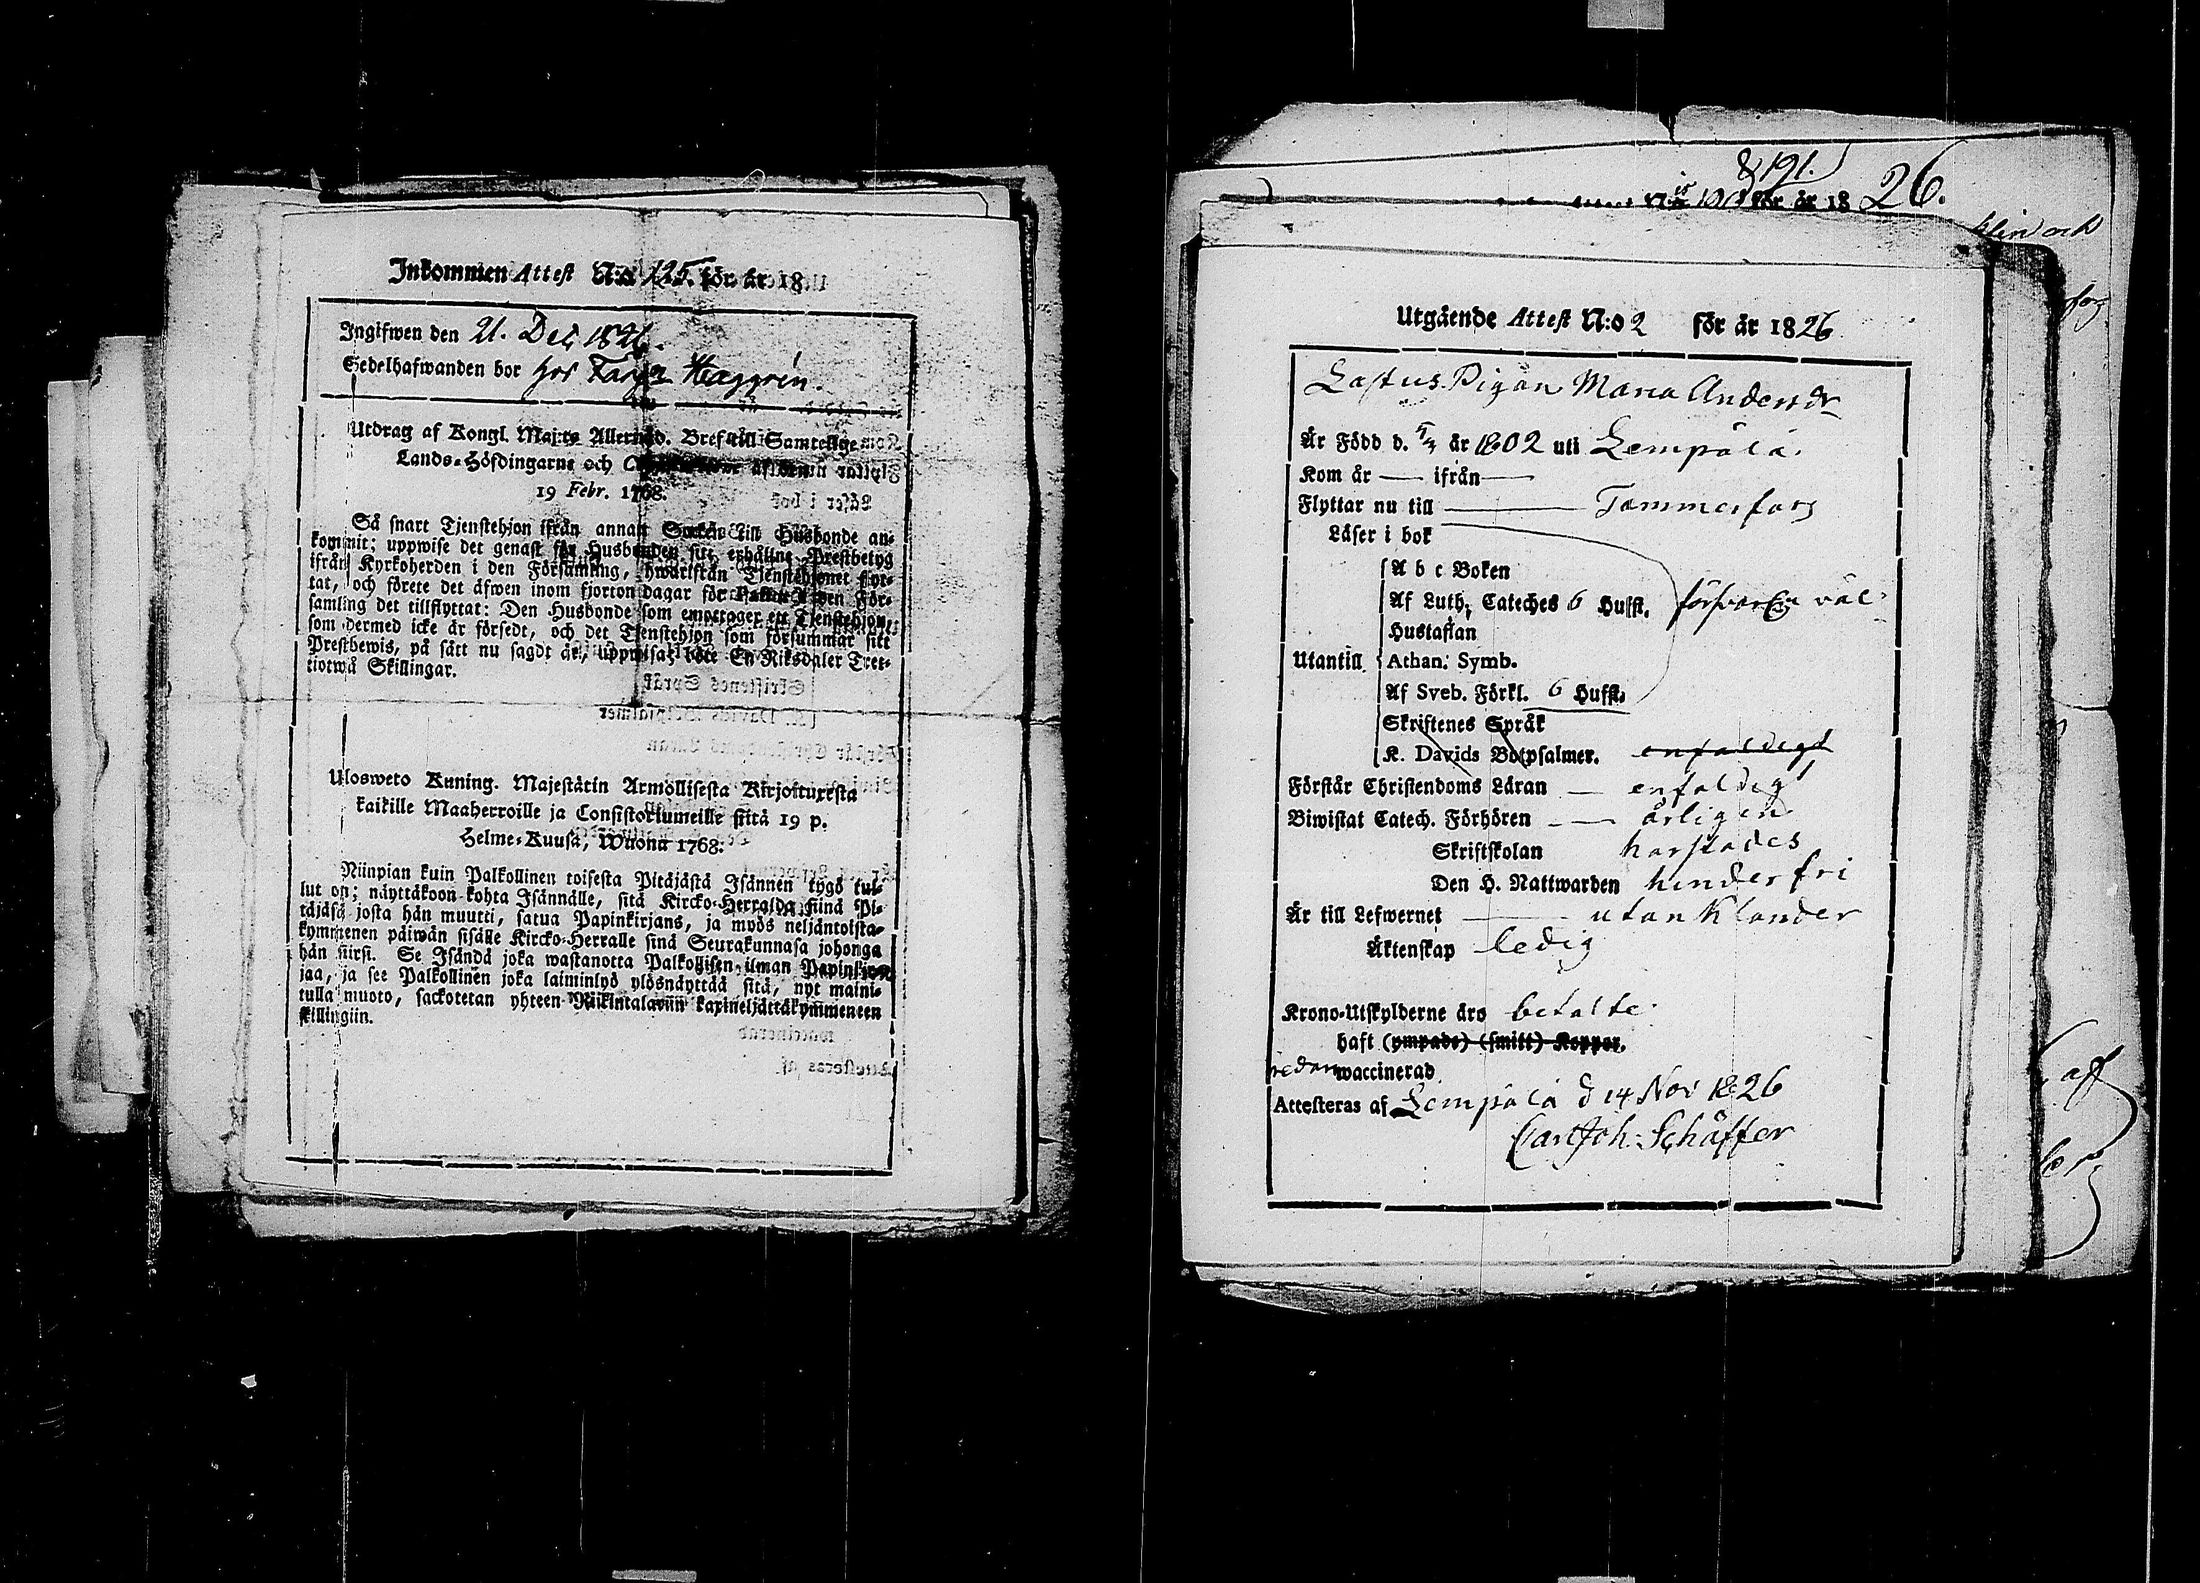 Inkommen Attest N:o 125. för år 18
Ingifwen den 21. Dec 1826.
Sedelhafwanden bor hos Häggrén.
Utdrag af Kongl. Maj:ts Allernåd. Bref till Samtelige
Lands-Höfdingarne och
19 Febr. 1768.
Så snart Tjenstehjon ifrån annan Socken till Husbonde an-
kommit; uppwise det genast för Husbonden sitt erhållne Prestbetyg
ifrån Kyrkoherden i den Församling, hwarifrån Tjenstehjonet flyt-
tat, och förete det äfwen inom fjorton dagar för Pastor i den För-
samling det tillflyttat: Den Husbonde som emottoger ett Tjenstehjon,
som dermed icke är försedt, och det Tjenstehjon som försummar sitt
Prestbewis, på sätt nu sagdt är, uppwisa, böte En Riksdaler Tret-
tiotwå Skillingar.
Ulosweto Kuning. Majestätin Armollisesta Kirjoituxesta
kaikille Maaherroille ja Consistoriumeille siitä 19 p.
Helme-Kuusa, Wuonna 1768.
Niinpian kuin Palkollinen toisesta Pitäjästä Isännen tygö tul-
lut on; näyttäkoon kohta Isännälle, sitä Kircko-Herralda siinä Pi-
täjäsä josta hän muutti, saatua Papinkirjans, ja myös neljäntoista-
kymmenen päiwän sisälle Kircko-Herralle siinä Seurakunnasa johonga
hän siirsi. Se Isändä joka wastanotta Palkollisen ilman Papinkirja-
jaa, ja see Palkollinen joka laiminlyö ylösnäyttää sitä, nyt maini-
tulla muoto, sackotetan yhteen Riikintalariin kaxineljättäkymmeneen
skillingiin.
& 191.
N:is 190 för år 1826.
Utgående Attest N:o 2 för år 1826
Lastus Pigan Maria Andersdr
Är Född d. 5/4 år 1802 uti Lempälä.
Kom år — ifrån —
Flyttar nu till — Tammerfors
Läser i bok
A b c Boken
Af Luth. Cateches 6 Huffst. försvarlig väl
Hustaflan
Utantill Athan. Symb.
Af Sveb. Förkl. 6 Huffst.
Skriftenes Språk
K. Davids Botpsalmer. enfaldigt
Förstår Christendoms Läran — enfaldigt
Biwistat Catech. Förhören — årligen
Skriftskolan harstädes
Den H. Nattwarden hinderfri
Är till Lefwernet — utan klander
Äktenskap ledig
Krono-Utskylderne äro betalte
haft (ympade) (smitt) Koppor.
redan waccinerad
Attesteras af Lempälä d 14 Nov 1826
Carl Joh. Schäffer